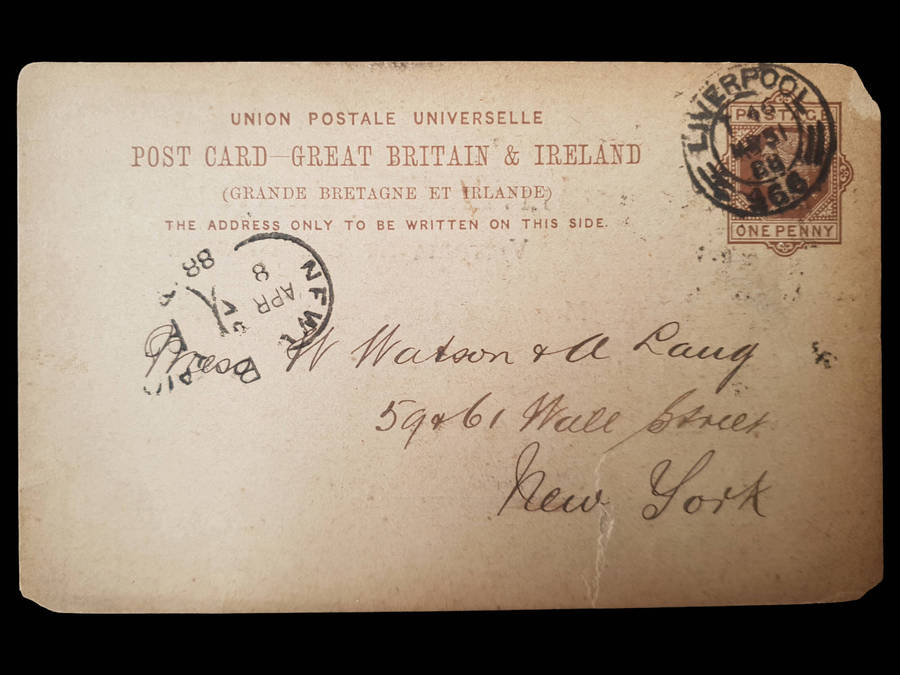 UNION POSTALE UNIVERSELLE
POST CARD—GREAT BRITAIN & IRELAND
(GRANDE BRETAGNE ET IRLANDE)
THE ADDRESS ONLY TO BE WRITTEN ON THIS SIDE.
LIVERPOOL
88
466
POSTAGE
ONE PENNY
NEW
APR
8
88
W Watson & A Lang
59 & 61 Wall Street
New York